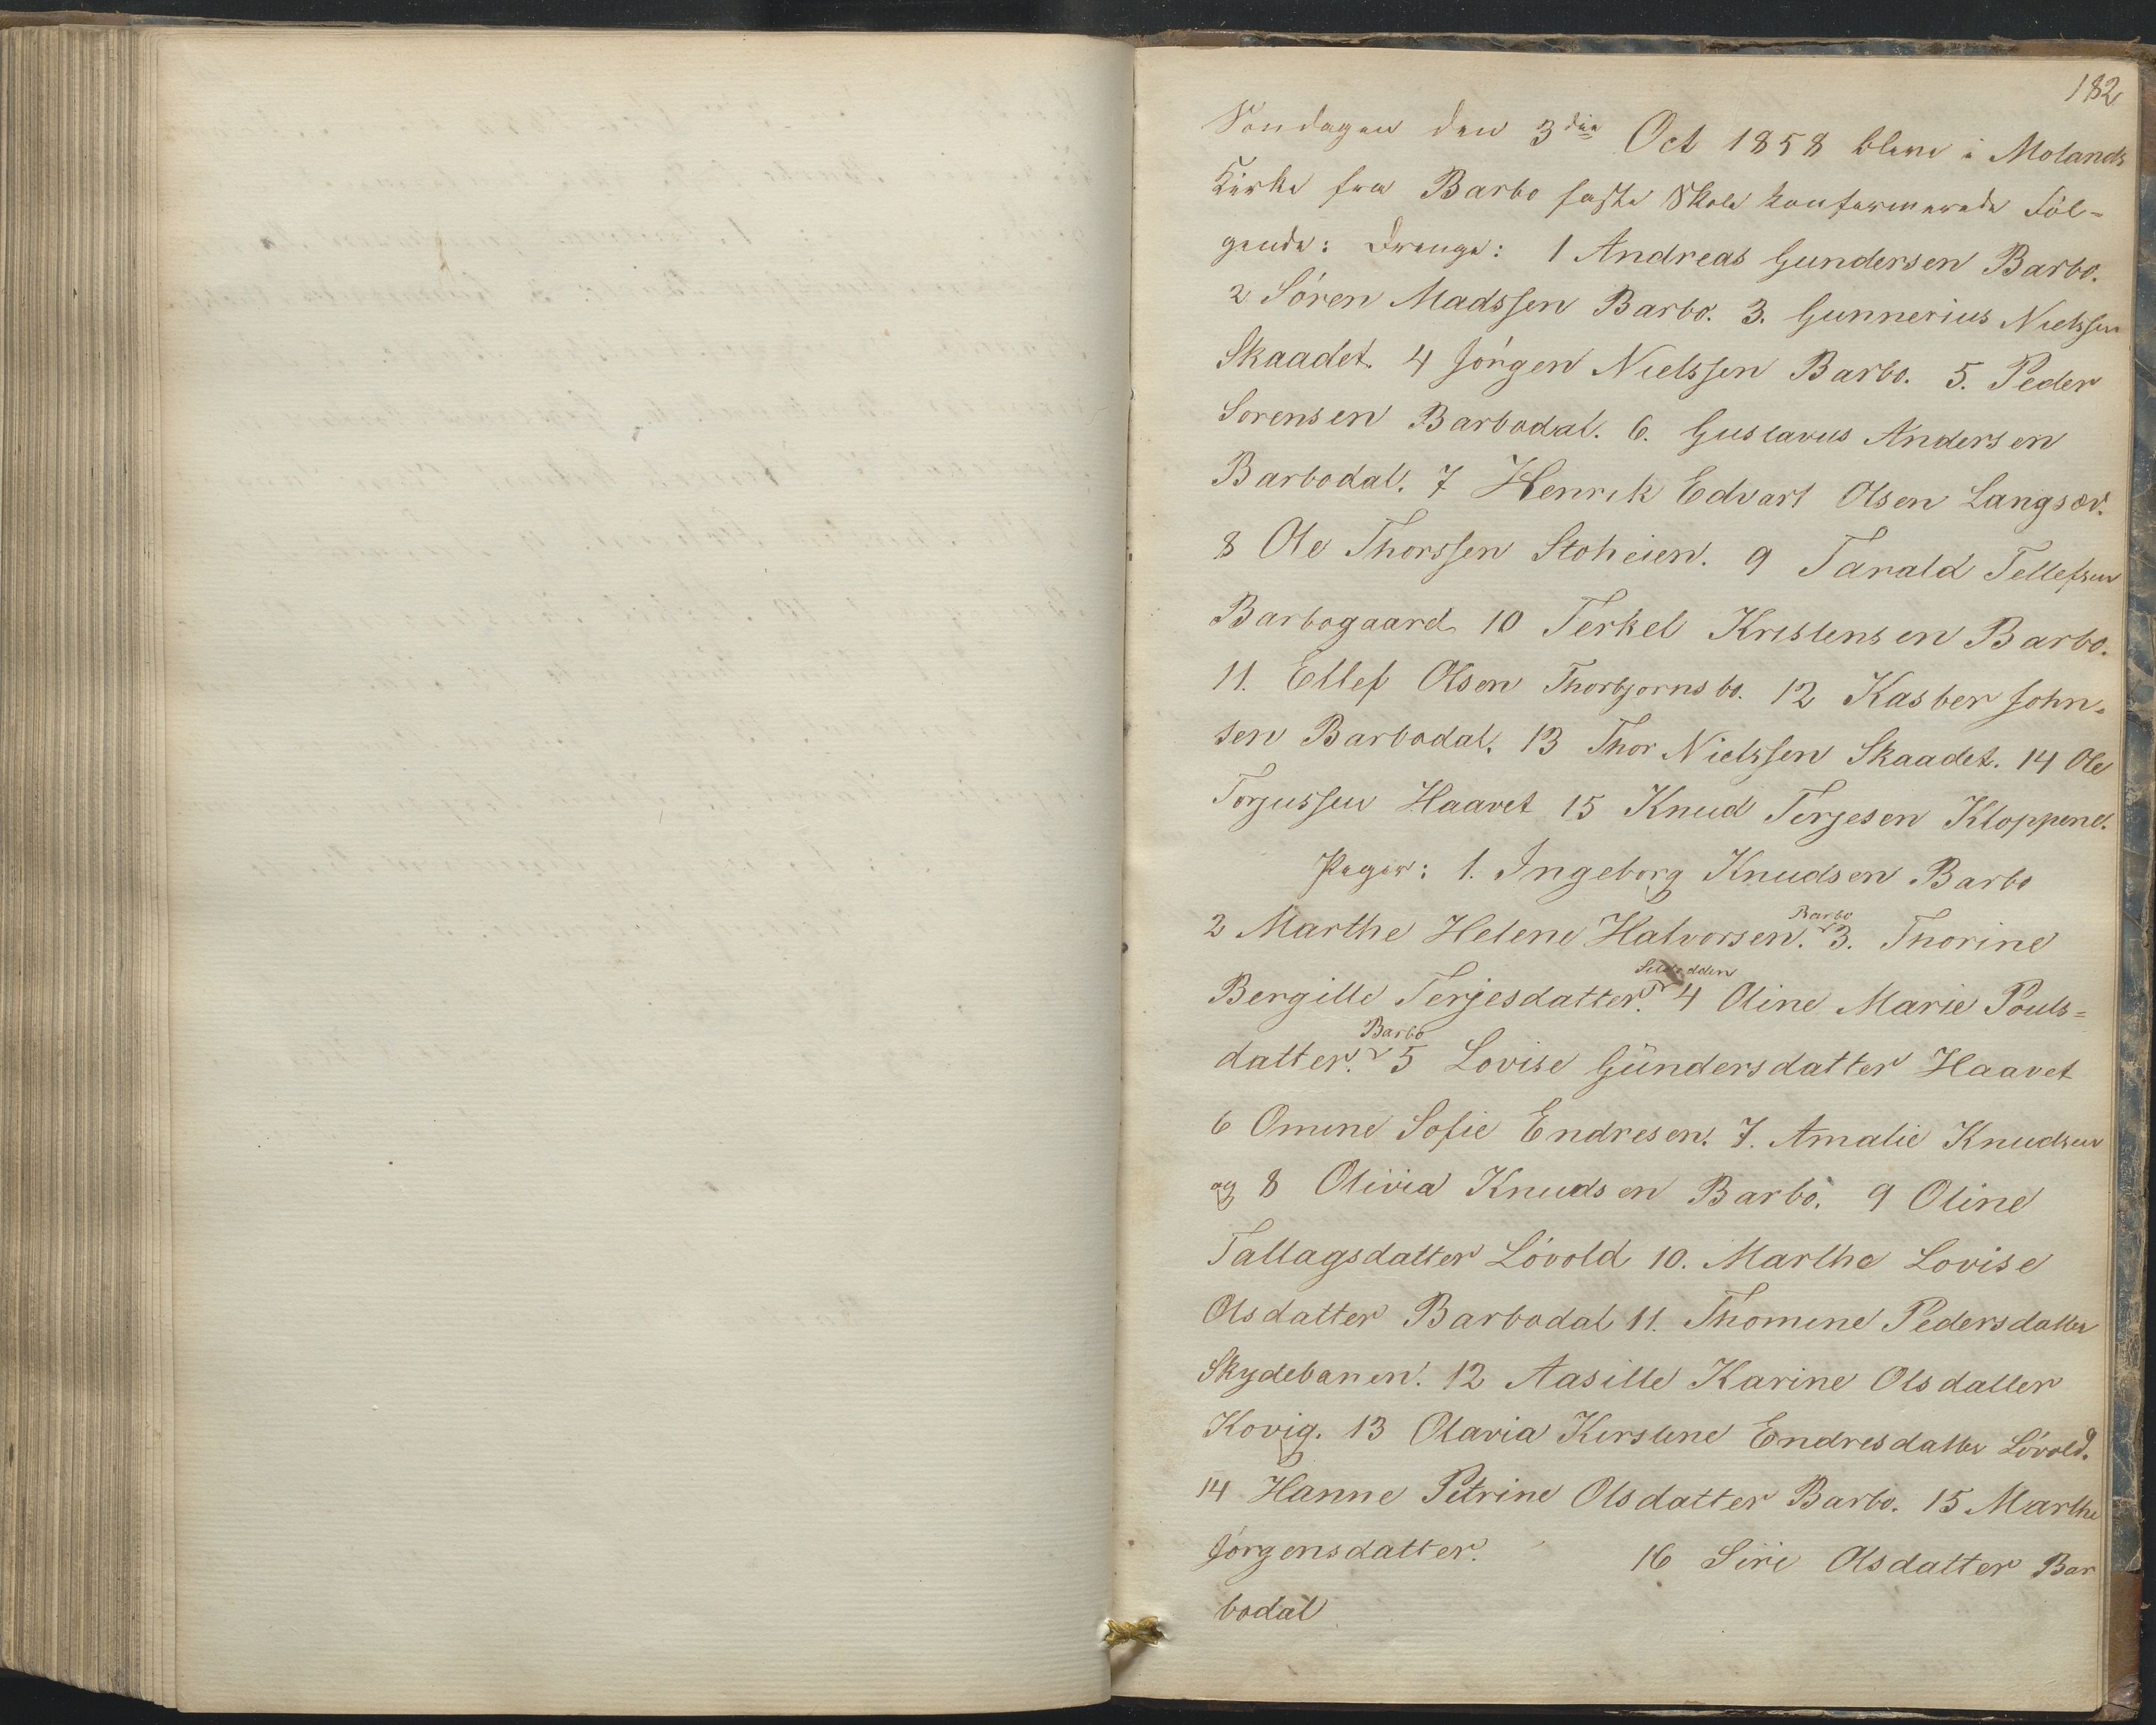 182
Søndagen den 3die Oct 1858 bleve i Molands
Kirke fra Barbo faste Skole konfermerede Föl-
gende: Drenge: 1 Andreas Gundersen Barbo.
2 Sören Madssen Barbo. 3. Gunnerius Nielssen
Skaadet. 4 Jörgen Nielssen Barbo. 5. Peder
Sorensen Barbodal. 6. Gustavus Andersen
Barbodal. 7 Henrik Edvart Olsen Langsæ.
8 Ole Thorssen Stoheien. 9 Tarald Tellefsen
Barbogaard 10 Terkel Kristensen Barbo.
11. Ellef Olsen Thorbjornsbo. 12 Kasber John-
sen Barbodal. 13 Thor Nielssen Skaadet. 14 Ole
Torjussen Haavet 15 Knud Terjesen Kloppene.
Piger: 1. Ingeborg Knudsen Barbo
2 Marthe Helene Halvorsen. Barbo 3. Thorine
Bergille Terjesdatter. 4 Oline Marie Pouls=
datter. Barbo 5 Lovise Gündersdatter Haavet
6 Omine Sofie Endresen. 7. Amalie Knudsen
og 8 Olivia Knudsen Barbo. 9 Oline
Tallagsdatter Lövold 10. Marthe Lovise
Olsdatter Barbodal 11. Thomine Pedersdatter
Skydebanen. 12 Aasille Karine Olsdatter
Kovig. 13 Olavia Kirstine Endresdatter Lövold.
14 Hanne Petrine Olsdatter Barbo. 15 Marthe
Jörgensdatter. 16 Siri Olsdatter Bar
bodal